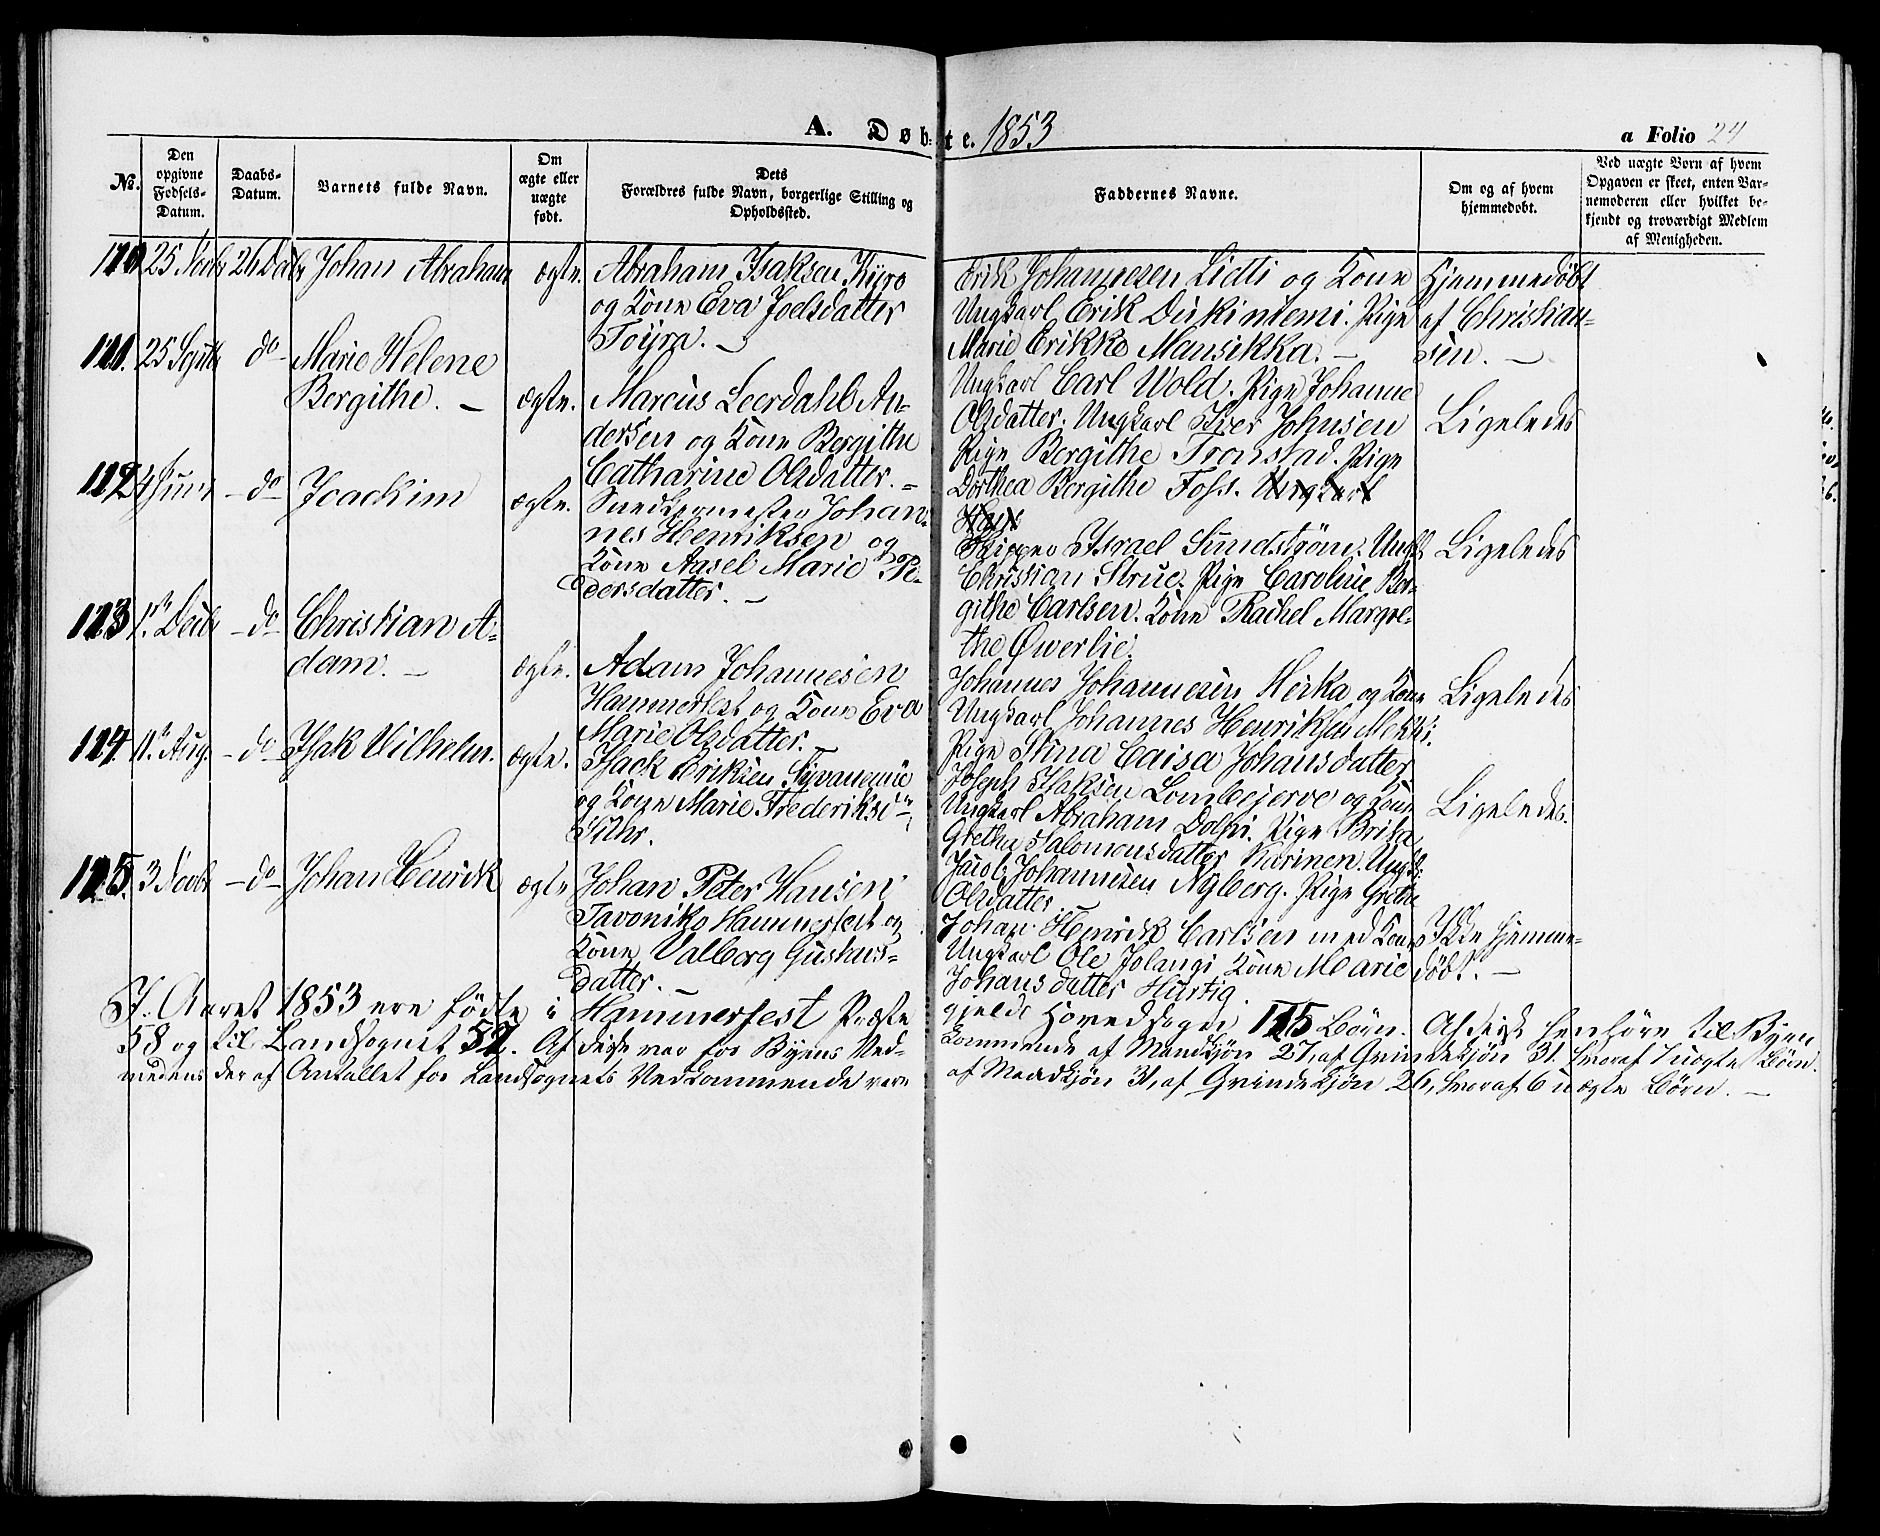 A. Døbte. 1853
a Folio 24
No.
Den opgivne Fødsels-Datum.
Daabs-Datum.
Barnets fulde Navn.
Om ægte eller uægte født.
Dets Forældres fulde Navn, borgerlige Stilling og Opholdssted.
Faddernes Navne.
Om og af hvem hjemmedøbt.
Ved uægte Børn af hvem Opgaven er skeet, enten Barnemoderen eller hvilket bekjendt og troværdigt Medlem af Menigheden.
25 Novbr 26 Decbr Johan Abraham ægte. Abraham Isaksen Kyrø
og Kone Eva Joelsdatter
Töyra. —
Erik Johannesen Lidti og Kone
Ungkarl Erik Durkiniemi. Pige
Marie Erikke Mansikka. —
Hjemmedøbt
af Christian-
sen. —
111. 25 Septbr do Marie Helene
Bergithe. — ægte. Marcus Leerdahl An-
dersen og Kone Bergithe
Catharine Olsdatter. —
Ungkarl Carl Wold. Pige Johanne
Olsdatter. Ungkarl Iver Johnsen
Pige Bergithe Tronstad. Pige
Dorthea Bergithe Foss. Ungkarl
Ligeledes
112 4 Juni — do Joackim ægte. Snedkermester Johan-
nes Henriksen og
Kone Aasel Marie Pe-
dersdatter. —
Skipper Israel Sundstrøm. Ungk.
Christian Strue. Pige Caroline Ber-
githe Carlsen. Kone Rachel Margre-
the Qwerlie.
Ligeledes
113 1ste Decbr — do Christian A-
dam. — ægte. Adam Johannesen
Hammerfest og Kone Eva
Marie Olsdatter. —
Johannes Johannesen Herka og Kone
Ungkarl Johannes Henriksen Mekki.
Pige Stina Caisa Johansdatter
Ligeledes
114. 11te Aug. — do Isak Vilhelm. ægte. Isack Eriksen Syvaniemie
og Kone Marie Frederiksdr
Fithr.
Joseph Isaksen Lombejerve og Kone
Ungkarl Abraham Dolpi. Pige Brita
Gretha Salomonsdatter Karinen. Ungk.
Jacob Johannesen Nyberg. Pige Grethe
Olsdatter.
Ligeledes.
115. 3 Novbr — do Johan Henrik ægte Johan Peter Hansen
Tavoniko Hammerfest og
Kone Valborg Gustavs-
datter. —
Johan Henrik Carlsen med Kone
Ungkarl Ole Jolangi Kone Marie
Johansdatter Hurtig.
Ikke hjemme-
døbt. —
I Aaret 1853 ere fødte i Hammerfest Præste
gjelds Hovedsogn 115 Börn. Af disse henföre til Byen
58 og til Landsognet 57. Af disse var for Byens Ved-
kommende af Mandkjøn 27, af Qvindekjön 31. hvoraf 7 uægte Börn.
medens der af Antallet for Landsognets Vedkommende vare
af Mandkjøn 31, af Qvindekjön 26, hvoraf 6 uægte Börn. —